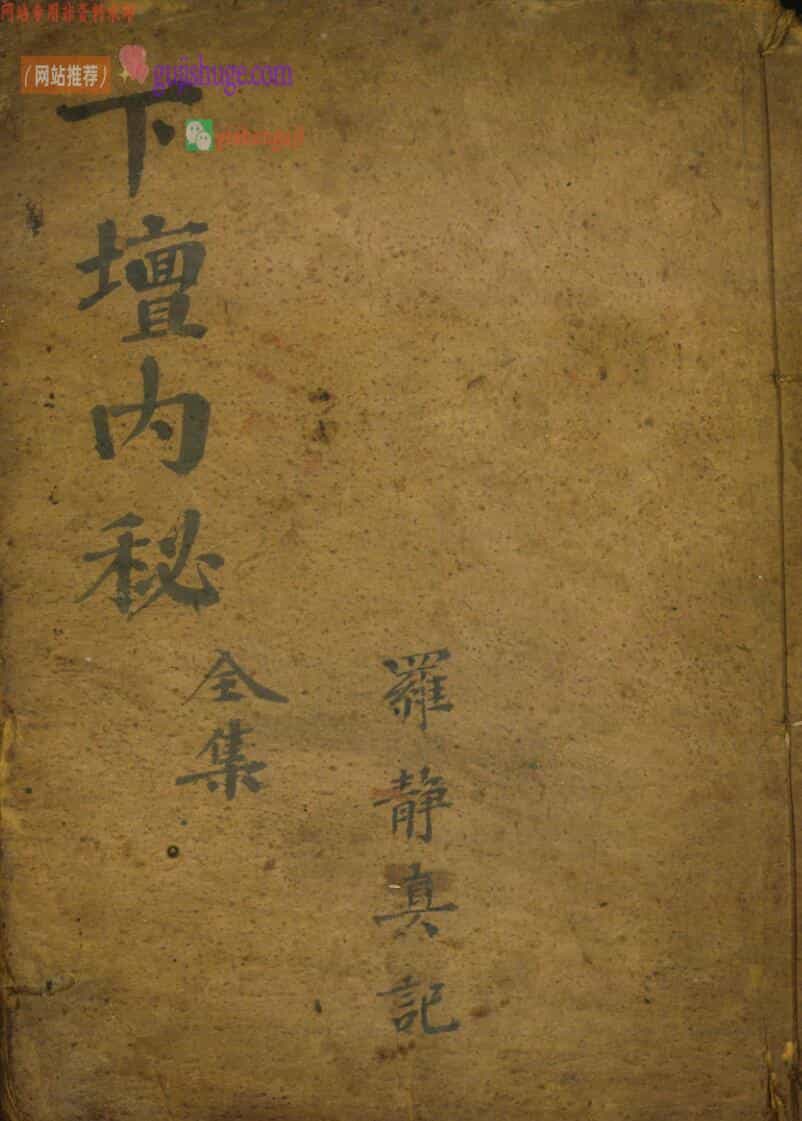 网站专用非资料水印
（网站推荐）
gujishuge.com
下壇內秘
全集
羅靜真記